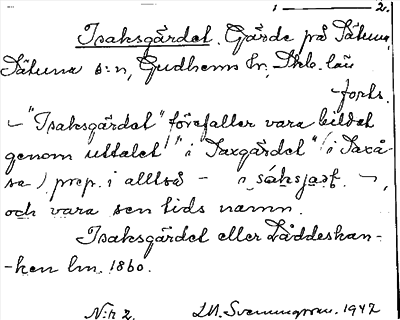 1 — 2.
Isaksgärdet. Gärde på Sätuna,
Sätuna s:n, Gudhems hr, Skbs. län
forts.
– "Isaksgärdet" förefaller vara bildat
genom uttalet "i Saxgärdet" (i Saxå-
sa) prep. i alltså – i sáksjaṣt. –,
och vara sen tids namn.
Isaksgärdet eller Låddeskan-
-ken lm. 1860.
N:r 2. I.M. Svenningsson. 1947